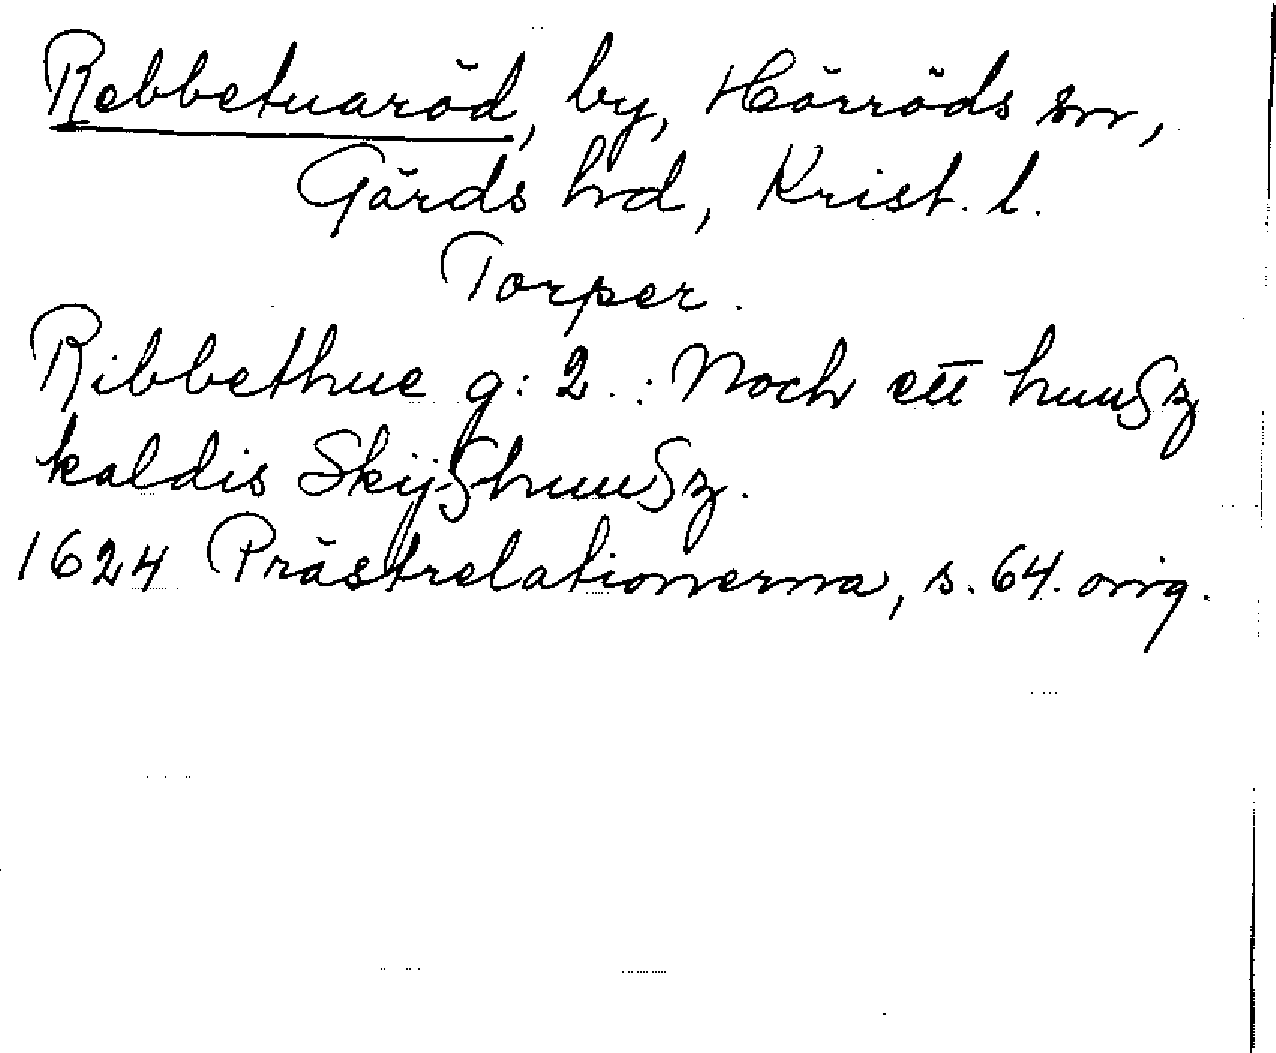 Rebbetuaröd, by, Hörröds sn,
Gärds hd, Krist. l.
Torper.
Ribbethue g: 2. : Noch ett huuſz
kaldis Skÿſhuuſz.
1624 Prästrelationerna, s. 64. orig.